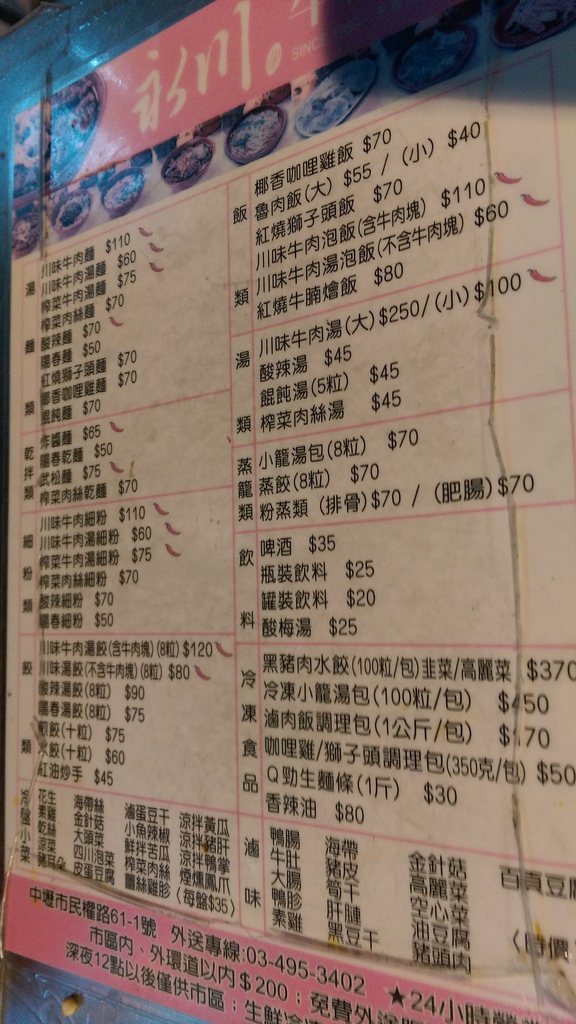 永川。牛
SINCE 1956
湯麵類
川味牛肉麵 $110
川味牛肉湯麵 $60
榨菜牛肉湯麵 $75
榨菜肉絲麵 $70
酸辣麵 $70
陽春麵 $50
紅燒獅子頭麵 $70
椰香咖哩雞麵 $70
餛飩麵 $70
乾拌類
炸醬麵 $65
陽春乾麵 $50
武松麵 $75
榨菜肉絲乾麵 $70
細粉類
川味牛肉細粉 $110
川味牛肉湯細粉 $60
榨菜牛肉湯細粉 $75
榨菜肉絲細粉 $70
酸辣細粉 $70
陽春細粉 $50
餃類
川味牛肉湯餃(含牛肉塊)(8粒) $120
川味湯餃(不含牛肉塊)(8粒) $80
酸辣湯餃(8粒) $90
陽春湯餃(8粒) $75
煎餃(十粒) $75
水餃(十粒) $60
紅油炒手 $45
小菜
花生 海帶絲 滷蛋豆干 涼拌黃瓜
素雞 金針菇 小魚辣椒 涼拌豬肝
乾絲 大頭菜 鮮拌苦瓜 涼拌鴨掌
涼菜 四川泡菜 榨菜肉絲 煙燻鳳爪
豬耳朵 皮蛋豆腐 薑絲雞胗 〈每盤$35〉
飯類
椰香咖哩雞飯 $70
魯肉飯(大) $55 / (小) $40
紅燒獅子頭飯 $70
川味牛肉泡飯(含牛肉塊) $110
川味牛肉湯泡飯(不含牛肉塊) $60
紅燒牛腩燴飯 $80
湯類
川味牛肉湯(大)$250/(小)$100
酸辣湯 $45
餛飩湯(5粒) $45
榨菜肉絲湯 $45
蒸籠類
小籠湯包(8粒) $70
蒸餃(8粒) $70
粉蒸類 (排骨)$70 / (肥腸)$70
飲料
啤酒 $35
瓶裝飲料 $25
罐裝飲料 $20
酸梅湯 $25
冷凍食品
黑豬肉水餃(100粒/包)韭菜/高麗菜 $370
冷凍小籠湯包(100粒/包) $450
滷肉飯調理包(1公斤/包)
咖哩雞/獅子頭調理包(350克/包) $50
Q勁生麵條(1斤) $30
香辣油 $80
滷味
鴨腸 海帶 金針菇 百頁豆腐
牛肚 豬皮 高麗菜
大腸 筍干 空心菜
鴨胗 肝腱 油豆腐
素雞 黑豆干 豬頭肉 〈時價
中壢市民權路61-1號 外送專線:03-495-3402 ★24小時營業
市區內、外環道以內$200；免費外送
深夜12點以後僅供市區；生鮮冷凍